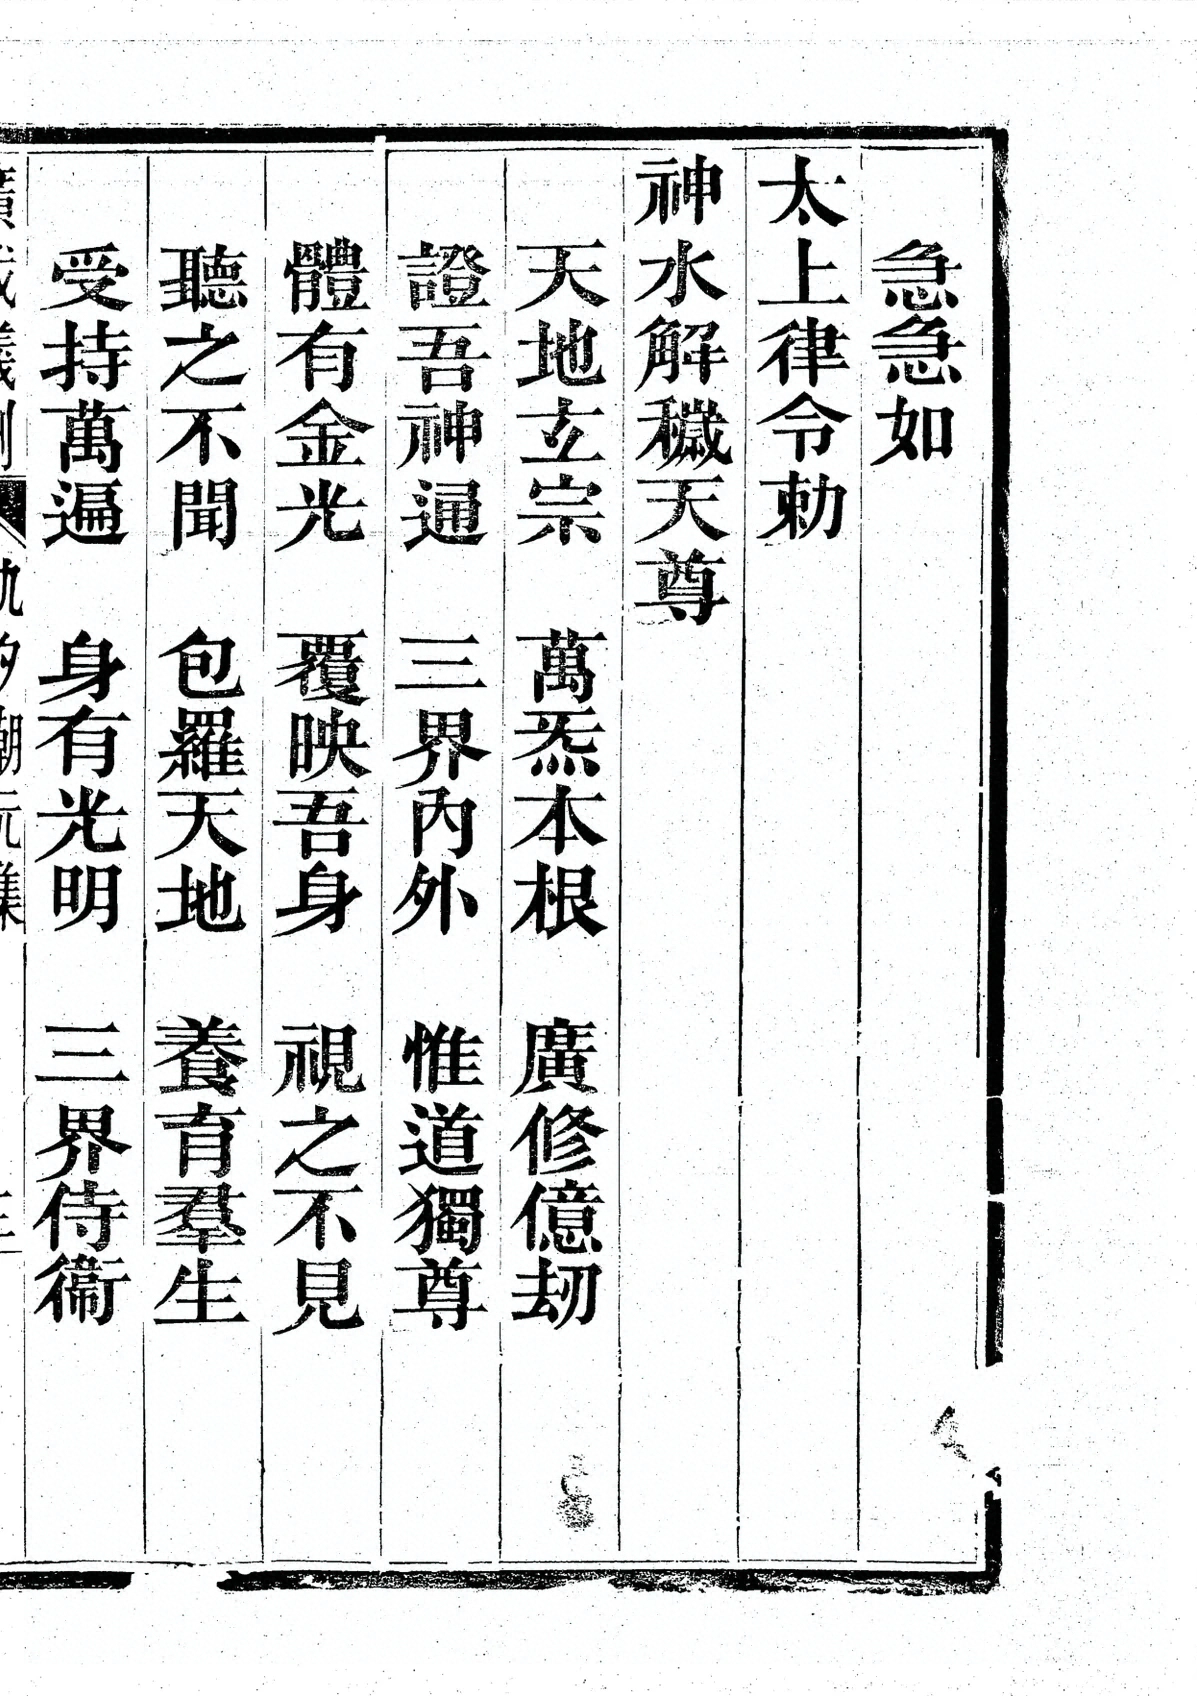 急急如
太上律令勅
神水解穢天尊
天地玄宗　萬炁本根　廣修億刼
證吾神通　三界內外　惟道獨尊
體有金光　覆映吾身　視之不見
聽之不聞　包羅天地　養育羣生
受持萬遍　身有光明　三界侍衞